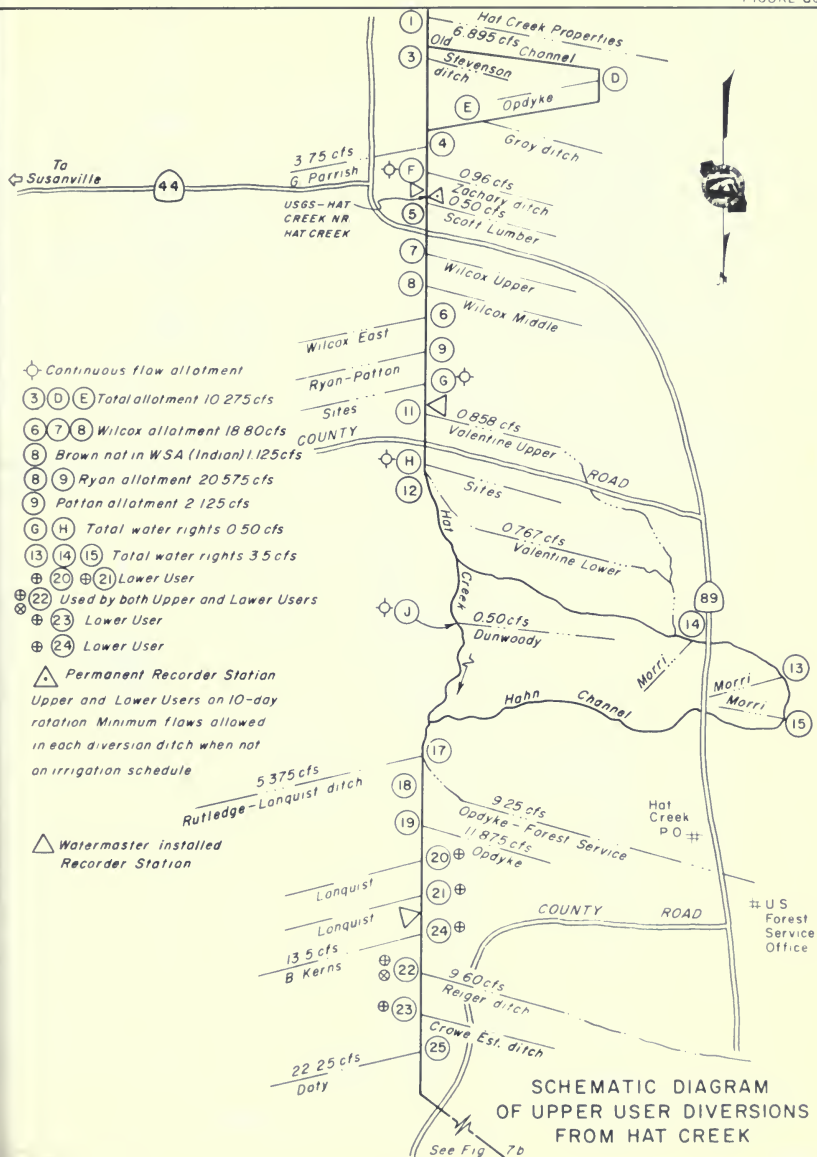 FIGURE
1
Hat Creek Properties
6.895 cfs
Old Channel
3
Stevenson
ditch
D
E
Opdyke
Gray ditch
4
3 75 cfs
G Parrish
To
Susanville
44
F
0.96 cfs
Zachary ditch
USGS-HAT
CREEK NR
HAT CREEK
0.50 cfs
5
Scott Lumber
7
Wilcox Upper
8
Wilcox Middle
6
Wilcox East
9
Ryan-Patton
G
Sites
11
0.858 cfs
Valentine Upper
COUNTY ROAD
H
Sites
12
Hat Creek
0.767 cfs
Valentine Lower
89
J
0.50 cfs
Dunwoody
14
Morri
13
Morri
Morri
15
Hahn Channel
17
5 375 cfs
Rutledge-Lonquist ditch
18
9 25 cfs
Opdyke - Forest Service
19
11 875 cfs
Opdyke
Hat
Creek
P O
20
Lonquist
21
Lonquist
COUNTY ROAD
U S
Forest
Service
Office
24
13 5 cfs
B Kerns
22
9 60 cfs
Reiger ditch
23
Crowe Est. ditch
25
22 25 cfs
Doty
See Fig 7b
Continuous flow allotment
3 D E Total allotment 10 275 cfs
6 7 8 Wilcox allotment 18 80 cfs
8 Brown not in WSA (Indian) 1.125 cfs
8 9 Ryan allotment 20 575 cfs
9 Patton allotment 2 125 cfs
G H Total water rights 0 50 cfs
13 14 15 Total water rights 3 5 cfs
⊕ 20 ⊕ 21 Lower User
⊕ ⊗ 22 Used by both Upper and Lower Users
⊕ 23 Lower User
⊕ 24 Lower User
Permanent Recorder Station
Upper and Lower Users on 10-day
rotation Minimum flaws allowed
in each diversion ditch when not
an irrigation schedule
Watermaster installed
Recorder Station
SCHEMATIC DIAGRAM
OF UPPER USER DIVERSIONS
FROM HAT CREEK